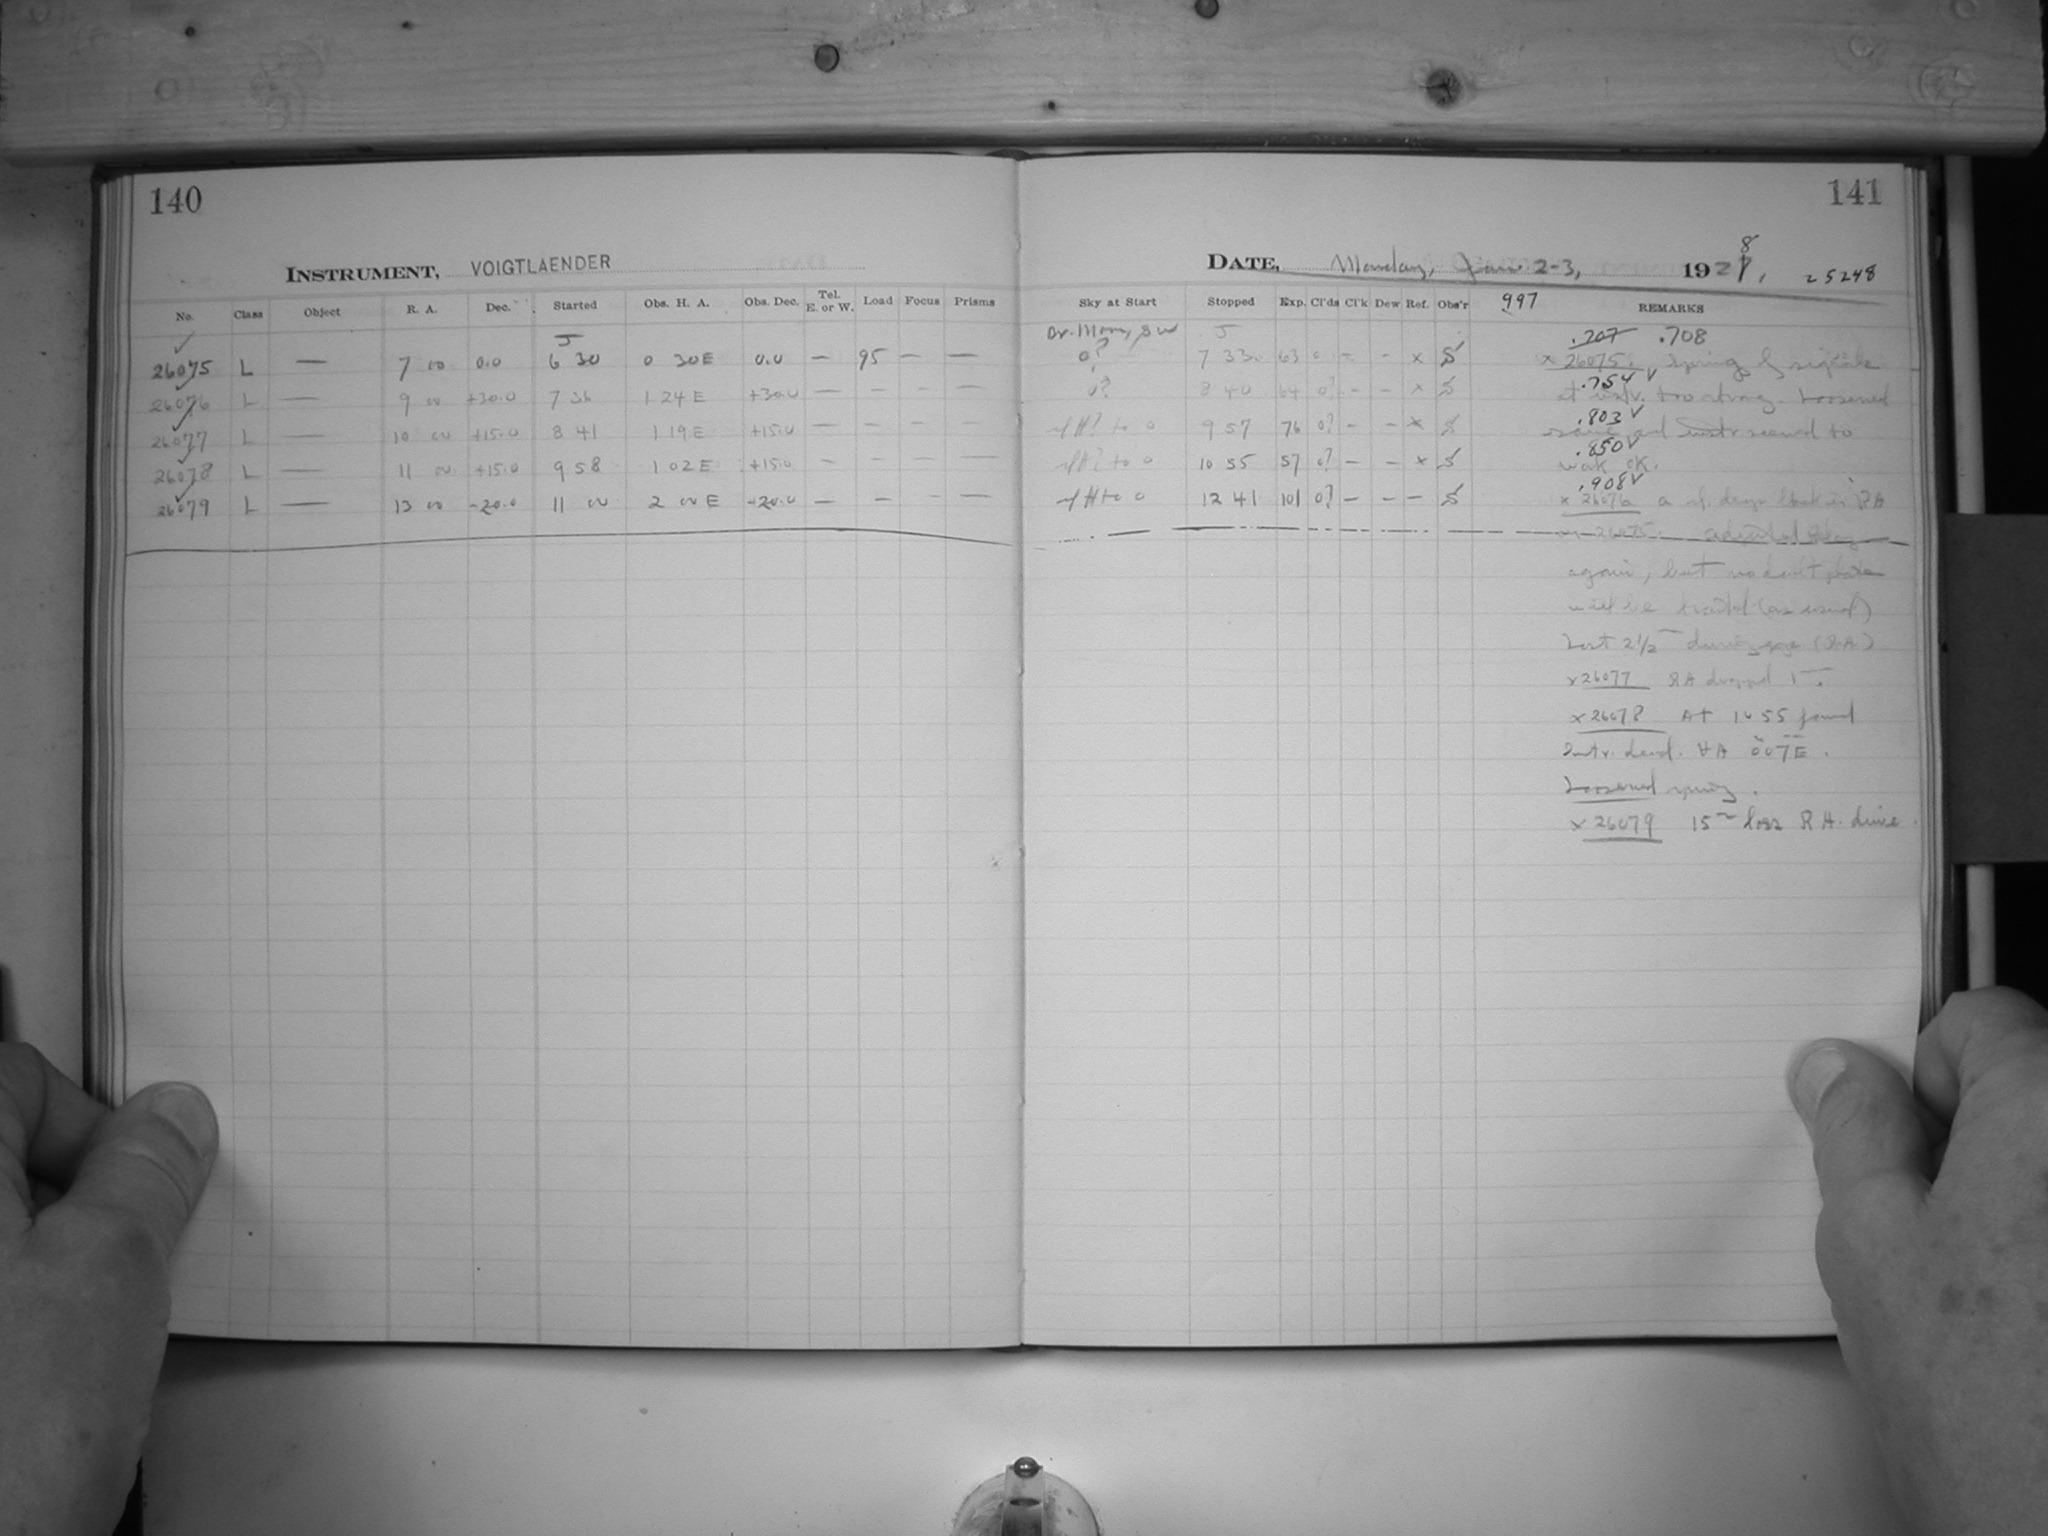 140
INSTRUMENT, VOIGTLAENDER
No. Class Object R. A. Dec. Started Obs. H. A. Obs. Dec. Tel. E. or W. Load Focus Prisms
J
26075 L — 7 00 0.0 6 30 0 30E 0.0 — 95 — —
26076 L — 9 00 +30.0 7 36 1 24 E +30.0 — — — —
26077 L — 10 00 +15.0 8 41 1 19 E +15.0 — — — —
26078 L — 11 00 +15.0 9 58 1 02 E +15.0 — — — —
26079 L — 13 00 -20.0 11 00 2 00 E -20.0 — — — —
141
DATE, Monday, Jan 2-3, 1928, 25248
Sky at Start Stopped Exp. Cl'ds Cl'k Dew Ref. Obs'r 997 REMARKS
Br. Moon, SW J .207 .708
0? 7 33 63 0 - - x S x 26075. Spring of
.754 v
0? 8 40 64 0? - - x S at instr. too strong. Loosened
.803 v
to 0 9 57 76 0? - - x S same and instr seemed to
.850 v
to 0 10 55 57 0? - - x S work OK.
.908 v
to 0 12 41 101 0? - - - S x 26076 a back in RA
26075. adjusted
again, but no doubt plate
will be trailed (as usual)
Lost 2 1/2 m during exp (RA)
x 26077 RA dropped 1 m.
x 26078 At 10 55 found
Instr. dead. HA 0 07 E.
Loosened spring.
x 26079 15 m loss R A. drive.